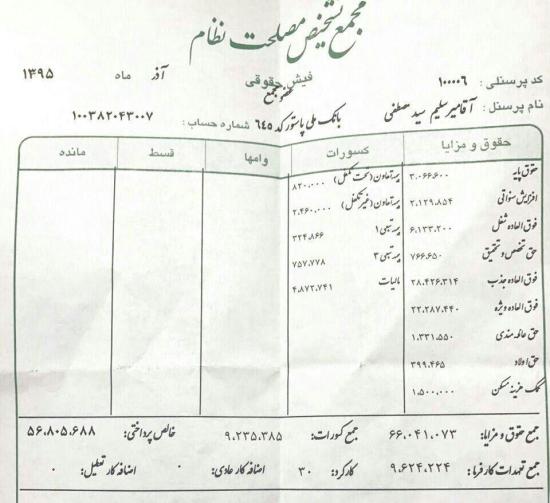 مجمع تشخیص مصلحت نظام
فیش حقوقی
آذر ماه ۱۳۹۵
عضو مجمع
کد پرسنلی : ۱۰۰۰۰۶
نام پرسنل : آقامیرسلیم سید مصطفی
بانک ملی پاستور کد ۶۴۵ شماره حساب : ۱۰۰۳۸۲۰۴۳۰۰۷
حقوق و مزایا کسورات وامها قسط مانده
حقوق پایه ۳،۰۶۶،۶۰۰ بیمه تعاون (تحت تکفل) ۸۲۰،۰۰۰
افزایش سنواتی ۲،۱۲۹،۸۵۴ بیمه تعاون (غیر تکفل) ۲،۴۶۰،۰۰۰
فوق العاده شغل ۶،۱۳۳،۲۰۰ بیمه تتمیمی ۱ ۳۲۴،۸۶۶
حق تخصص و تحقیق ۷۶۶،۶۵۰ بیمه تتمیمی ۲ ۷۵۷،۷۷۸
فوق العاده جذب ۲۸،۴۲۶،۳۱۴ مالیات ۴،۸۷۲،۷۴۱
فوق العاده ویژه ۲۲،۲۸۷،۴۴۰
حق عائله مندی ۱،۳۳۱،۵۵۰
حق اولاد ۳۹۹،۴۶۵
کمک هزینه مسکن ۱،۵۰۰،۰۰۰
جمع حقوق و مزایا: ۶۶،۰۴۱،۰۷۳ جمع کسورات: ۹،۲۳۵،۳۸۵ خالص پرداختی: ۵۶،۸۰۵،۶۸۸
جمع تعهدات کارفرما: ۹،۶۲۴،۲۲۴ کارکرد: ۳۰ اضافه کار عادی: ۰ اضافه کار تعطیل: ۰